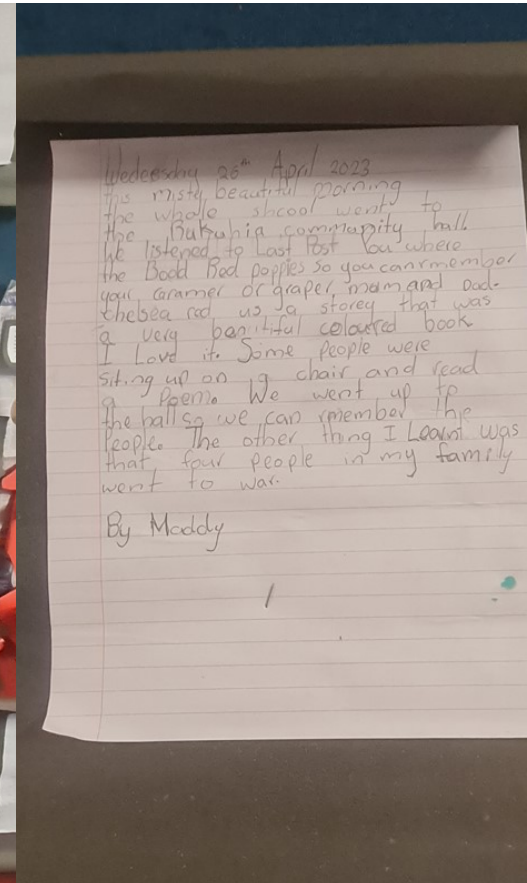 Wedcesday 26th April 2023
this misty beautiful morning
the whole shcool went to
the Bukuhia commapity hall.
We listened to Last Post You where
the Bodd Red poppies so you can rmember
your, Garamer or graper, mam and Dad.
Chelsea rad us a storey that was
a very beautiful coloured book
I Love it. Some People were
Siting up on a chair and read
a Poem. We went up to
the hall so we can rmember the
People. The other thing I Learnt was
that four People in my family
went to war.
By Maddy